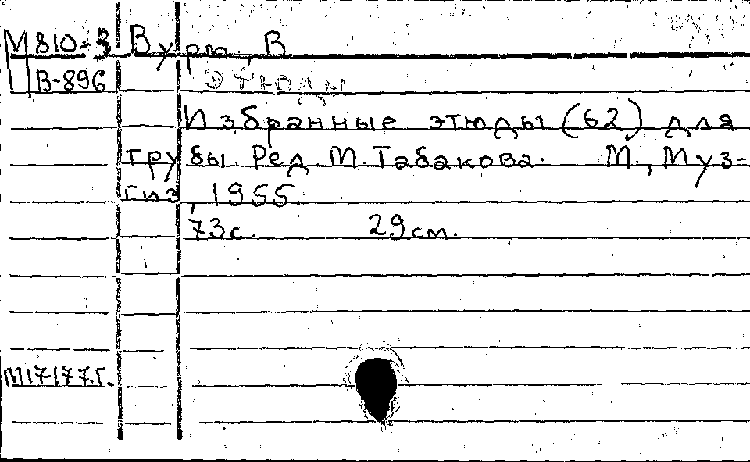 М810-3 Вурм, В
В-896 Этюды
Избранные этюды (62) для
трубы. Ред. М. Табакова. М., Муз-
гиз, 1955.
73с. 29см.
М17177.г.